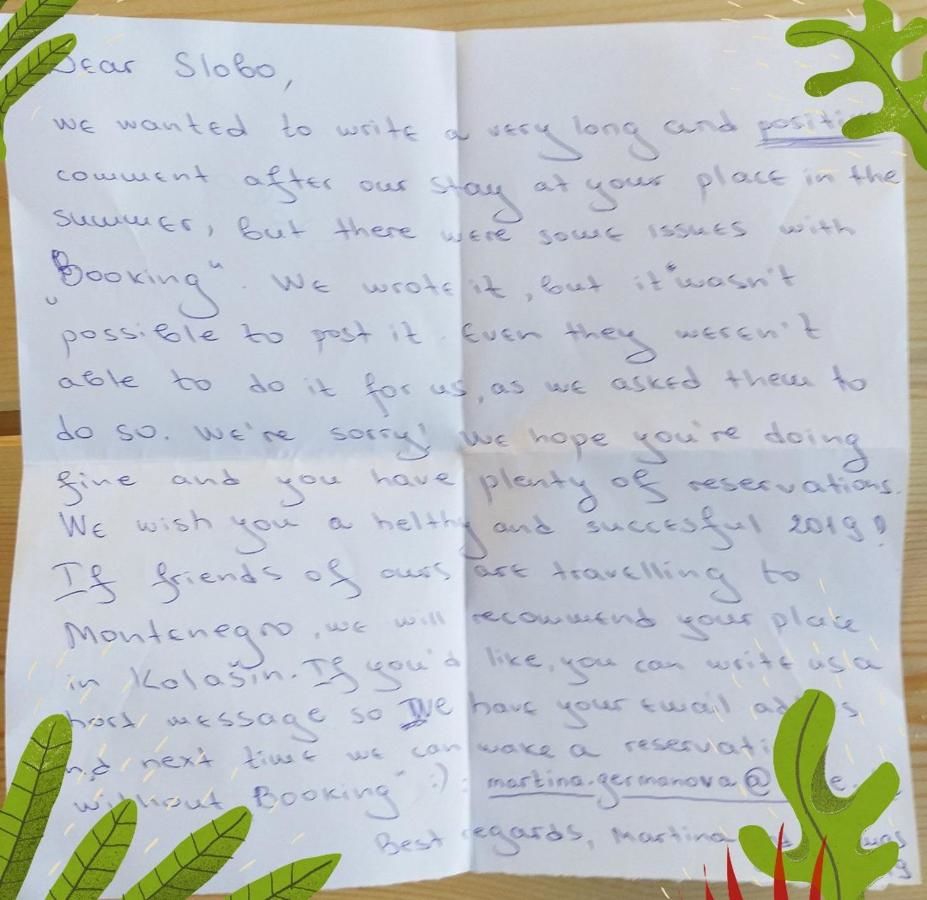 Dear Slobo,
we wanted to write a very long and positi
comment after our stay at your place in the
summer, but there were some issues with
„Booking“. We wrote it, but it wasn't
possible to post it. Even they weren't
able to do it for us, as we asked them to
do so. We're sorry! We hope you're doing
fine and you have plenty of reservations.
We wish you a helthy and succesful 2019!
If friends of ours are travelling to
Montenegro, we will recommend your place
in Kolašin. If you'd like, you can write us a
hort message so we have your email ad s
nd next time we can make a reservati
without Booking“ :) : martina.germanova@ e.
Best regards, Martina